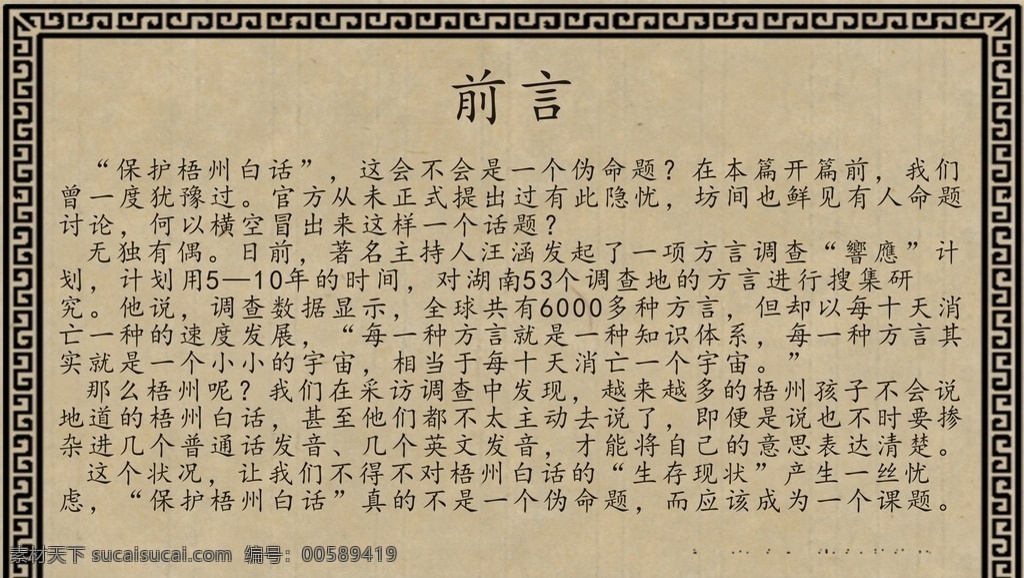 前言
“保护梧州白话”，这会不会是一个伪命题？在本篇开篇前，我们
曾一度犹豫过。官方从未正式提出过有此隐忧，坊间也鲜见有人命题
讨论，何以横空冒出来这样一个话题？
无独有偶。日前，著名主持人汪涵发起了一项方言调查“響應”计
划，计划用5—10年的时间，对湖南53个调查地的方言进行搜集研
究。他说，调查数据显示，全球共有6000多种方言，但却以每十天消
亡一种的速度发展，“每一种方言就是一种知识体系，每一种方言其
实就是一个小小的宇宙，相当于每十天消亡一个宇宙。”
那么梧州呢？我们在采访调查中发现，越来越多的梧州孩子不会说
地道的梧州白话，甚至他们都不太主动去说了，即便是说也不时要掺
杂进几个普通话发音、几个英文发音，才能将自己的意思表达清楚。
这个状况，让我们不得不对梧州白话的“生存现状”产生一丝忧
虑，“保护梧州白话”真的不是一个伪命题，而应该成为一个课题。
素材天下 sucaisucai.com 编号：00589419